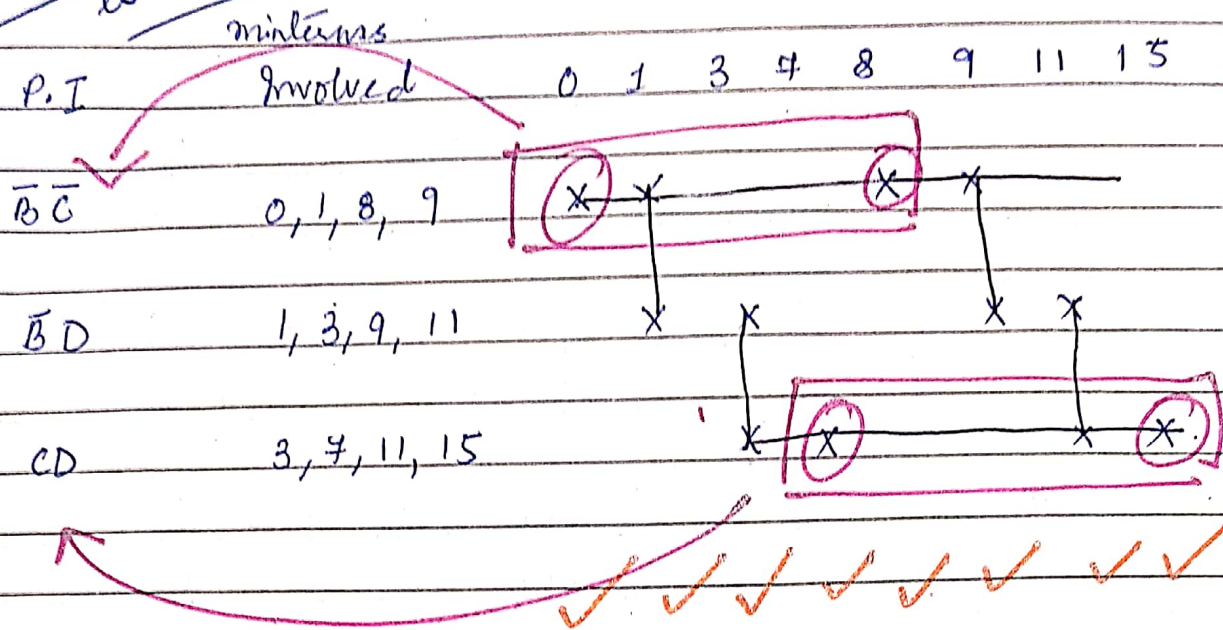 minterms
P.I Involved 0 1 3 7 8 9 11 15
B̄ C̄ 0, 1, 8, 9 x x x x
B̄ D 1, 3, 9, 11 x x x x
CD 3, 7, 11, 15 x x x x
✓ ✓ ✓ ✓ ✓ ✓ ✓ ✓